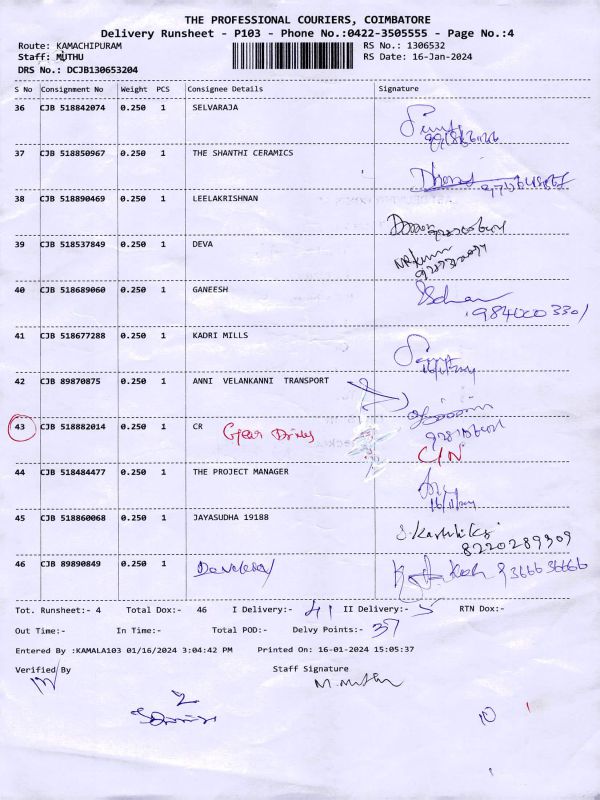 THE PROFESSIONAL COURIERS, COIMBATORE
Delivery Runsheet - P103 - Phone No.:0422-3505555 - Page No.:4
Route: KAMACHIPURAM RS No.: 1306532
Staff: MUTHU RS Date: 16-Jan-2024
DRS No.: DCJB130653204
S No Consignment No Weight PCS Consignee Details Signature
36 CJB 518842074 0.250 1 SELVARAJA
37 CJB 518850967 0.250 1 THE SHANTHI CERAMICS
38 CJB 518890469 0.250 1 LEELAKRISHNAN
39 CJB 518537849 0.250 1 DEVA
40 CJB 518689060 0.250 1 GANEESH
9840003301
41 CJB 518677288 0.250 1 KADRI MILLS
16/1/2024
42 CJB 89870875 0.250 1 ANNI VELANKANNI TRANSPORT
43 CJB 518882014 0.250 1 CR Gear Drives
C/N
44 CJB 518484477 0.250 1 THE PROJECT MANAGER
16/1/2024
45 CJB 518860068 0.250 1 JAYASUDHA 19188
8220289309
46 CJB 89890849 0.250 1
93666 36666
Tot. Runsheet:- 4 Total Dox:- 46 I Delivery:- 41 II Delivery:- 5 RTN Dox:-
Out Time:- In Time:- Total POD:- Delvy Points:- 37
Entered By :KAMALA103 01/16/2024 3:04:42 PM Printed On: 16-01-2024 15:05:37
Verified By Staff Signature
M. Muthu
10